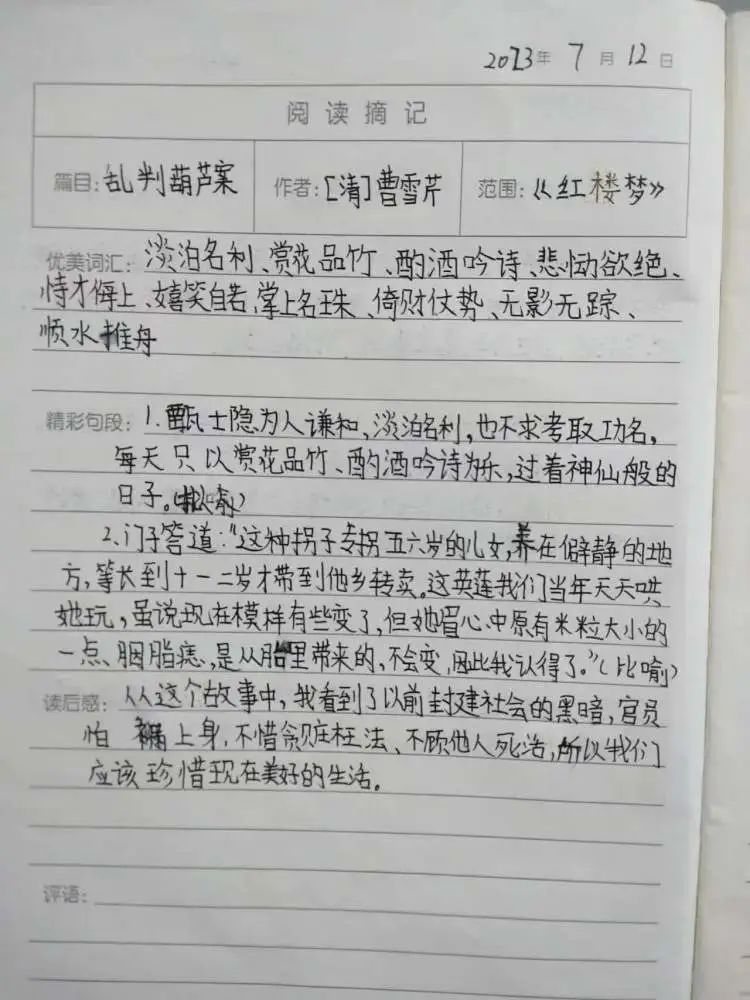 2023年 7 月 12 日
阅读摘记
篇目:乱判葫芦案 作者:[清]曹雪芹 范围:《红楼梦》
优美词汇:淡泊名利、赏花品竹、酌酒吟诗、悲恸欲绝、
恃才侮上、嬉笑自若、掌上名珠、倚财仗势、无影无踪、
顺水推舟
精彩句段:1.甄士隐为人谦和,淡泊名利,也不求考取功名,
每天只以赏花品竹、酌酒吟诗为乐,过着神仙般的
日子。
2.门子答道:“这种拐子专拐五六岁的儿女,养在僻静的地
方,等长到十一二岁才带到他乡转卖。这英莲我们当年天天哄
她玩,虽说现在模样有些变了,但她眉心中原有米粒大小的
一点、胭脂痣,是从胎里带来的,不会变,因此我认得了。”(比喻)
读后感:从这个故事中,我看到了以前封建社会的黑暗,官员
怕祸上身,不惜贪赃枉法、不顾他人死活,所以我们
应该珍惜现在美好的生活。
评语: